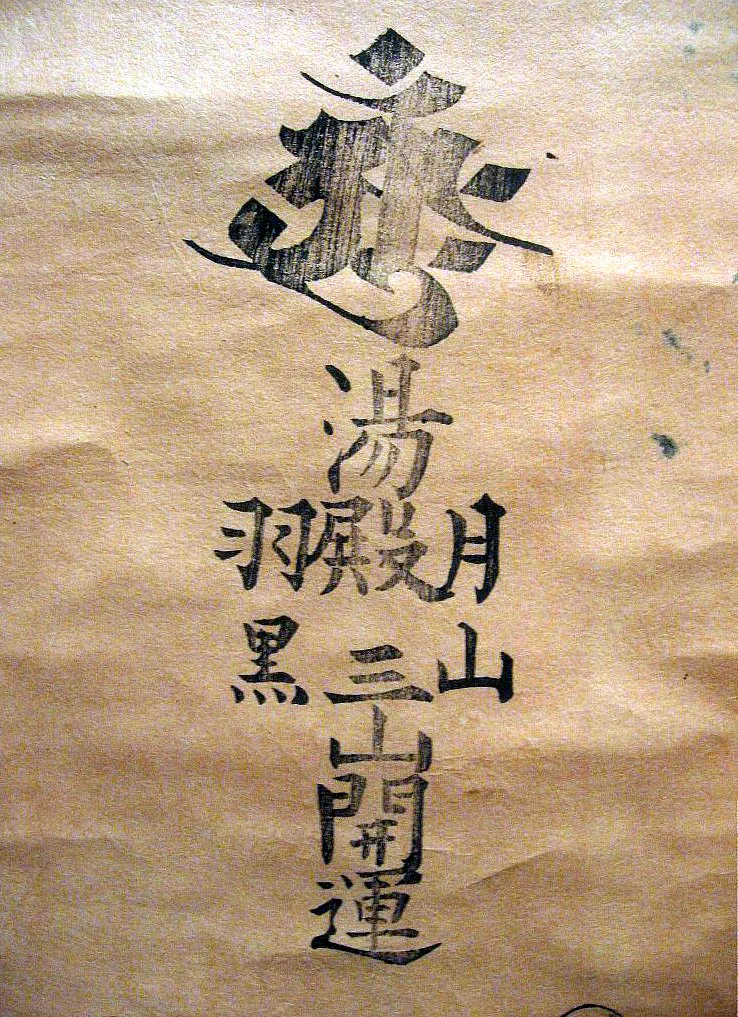 月山
湯殿三山開運
羽黒